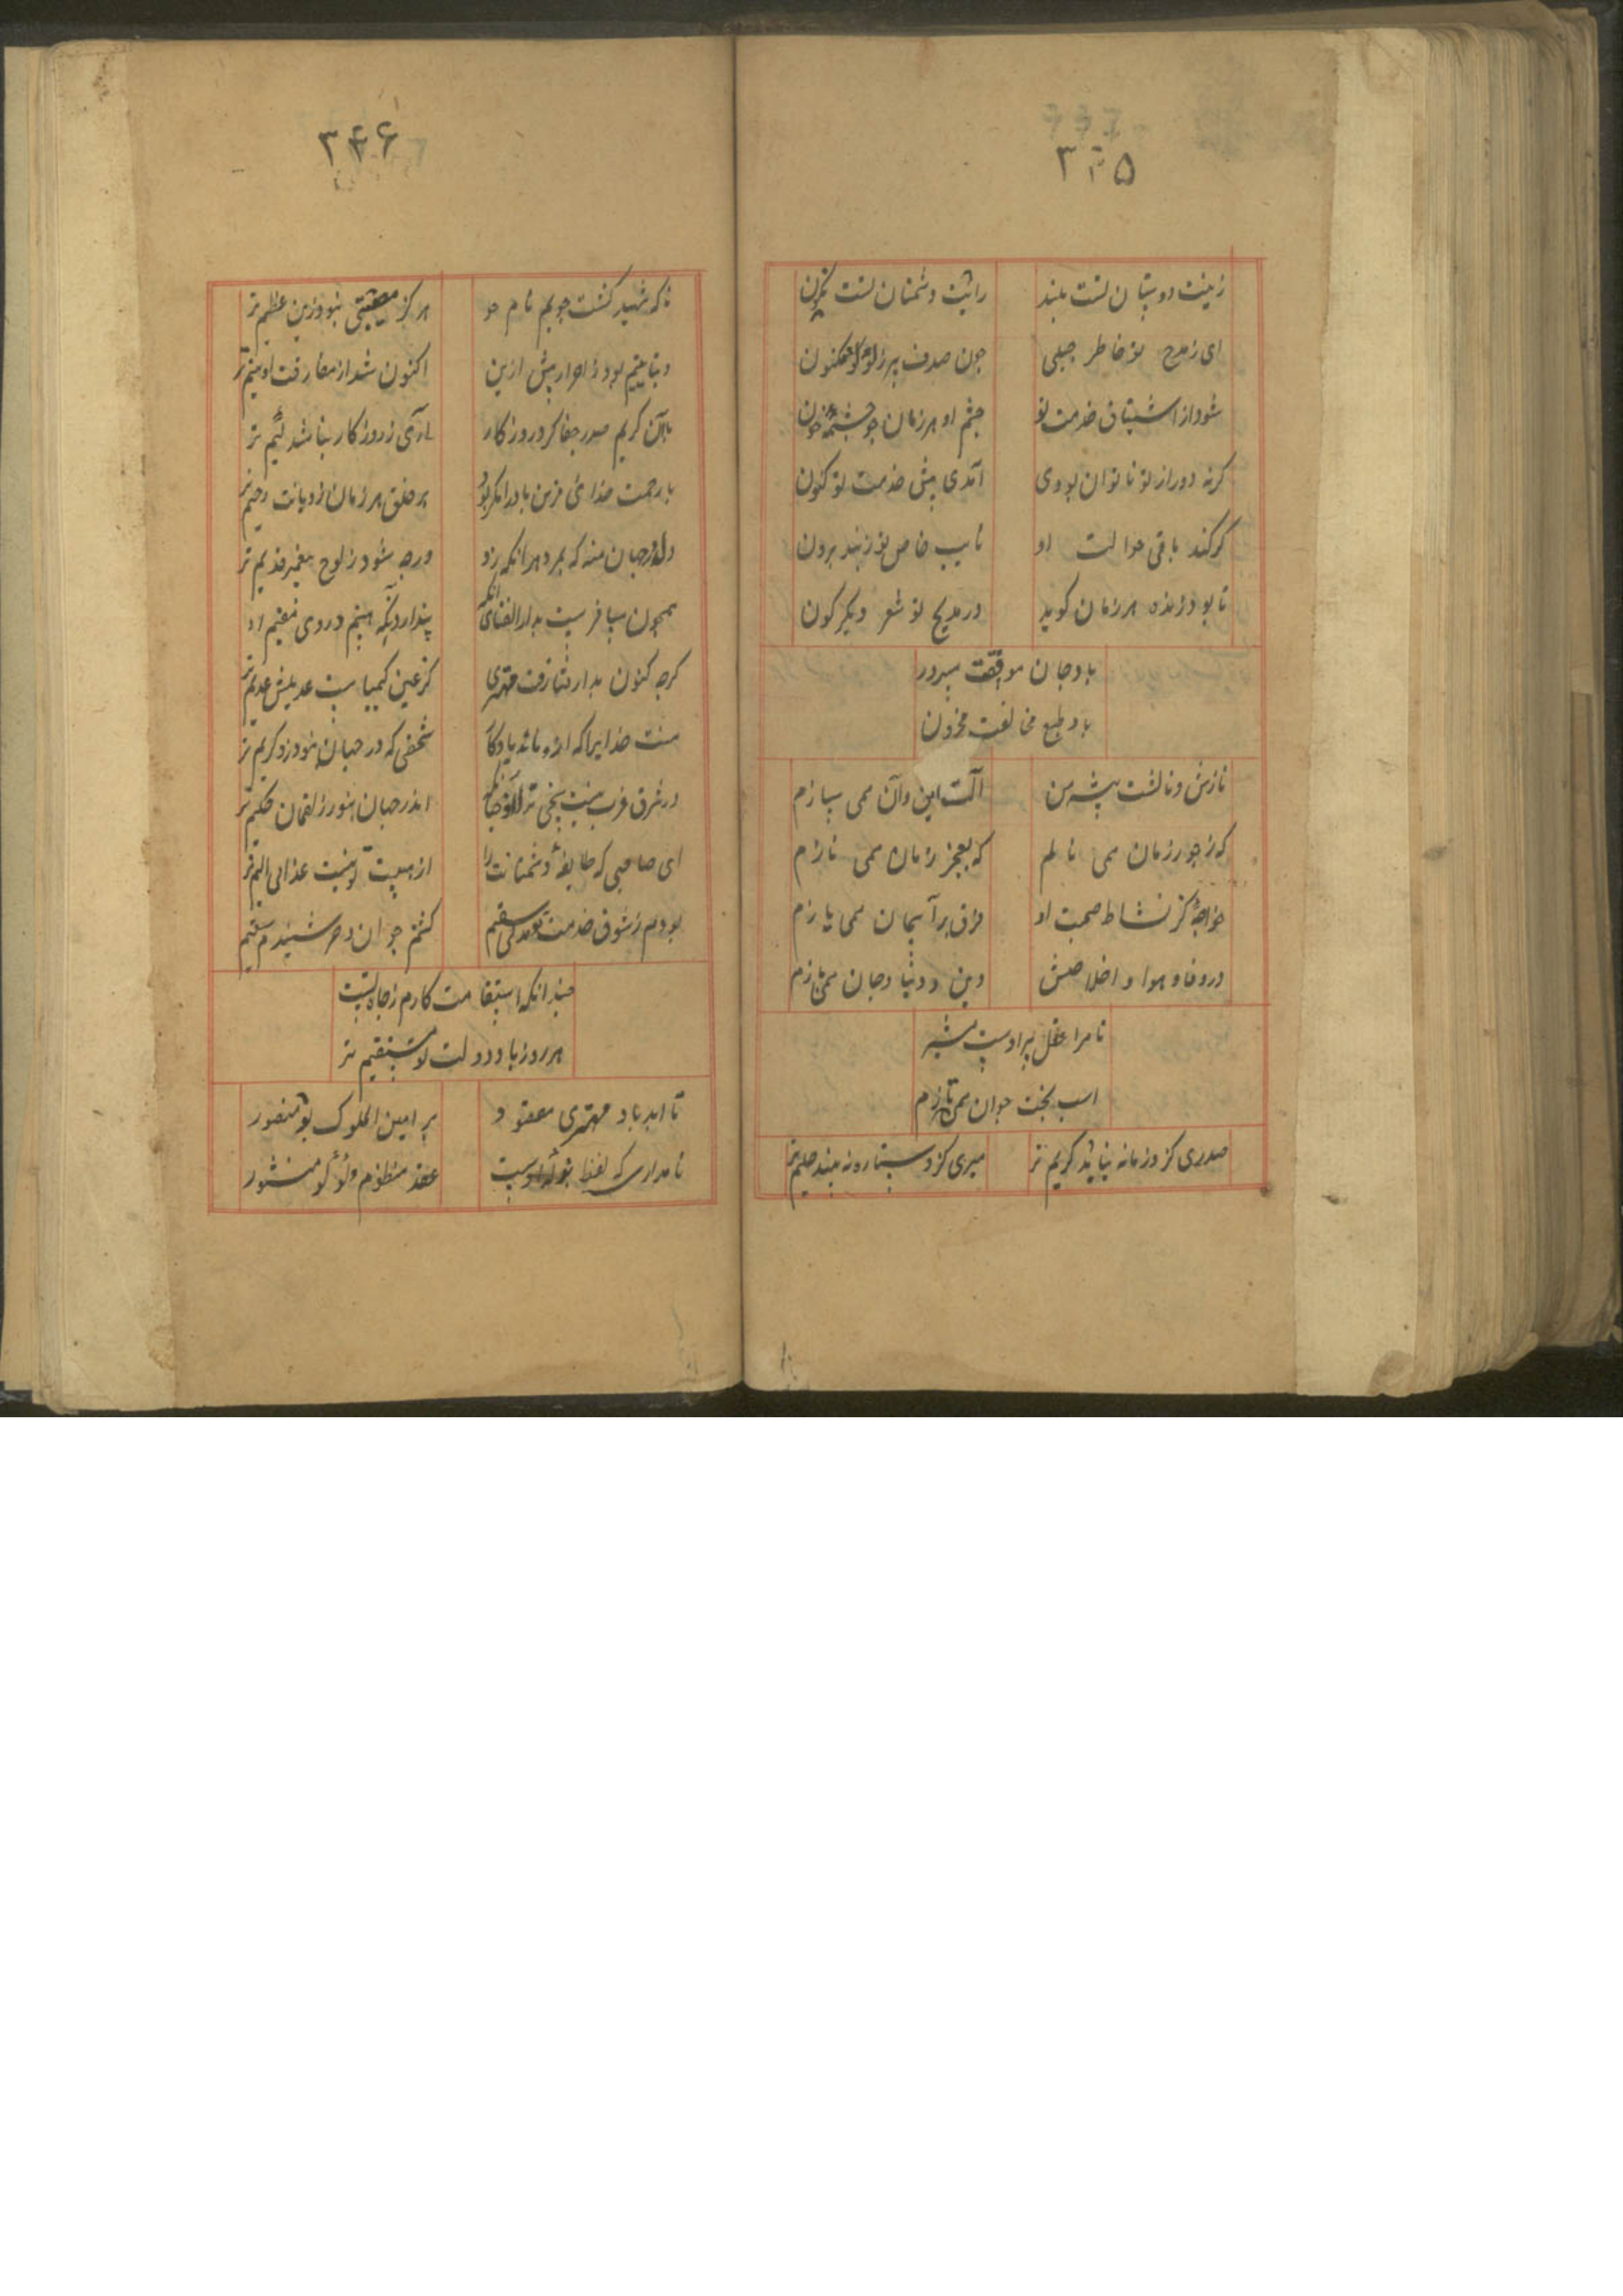 ۳۴۵
زینت دوستان تست بلند
رایت دشمنان تست نکون
ای ز مدح تو خاطر جبلی
چون صدف پر ز لؤلؤ مکنون
شود از اشتیاق خدمت تو
چشم او هر زمان چو چشمه خون
کرنه دور از تو ناتوان بودی
آمدی پیش خدمت تو کنون
کر کند باقی حوالت او
نایب خاص تو ز بند برون
تا بود زنده هر زمان کوید
در مدیح تو شعر دیکر کون
باد جان موافقت مسرور
باد طبع مخالفت محزون
نازش و نالشت پیشه من
آلت این و آن همی سازم
که ز جور زمان همی نالم
که بعجز زمان همی نازم
خواجه کز نشاط صحبت او
فرق بر آسمان همی یازم
در وفا و هوا و اخلاصش
دین و دنیا و جان همی بازم
تا مرا عقل پیر اوست مشیر
اسب بخت جوان همی تازم
صدری کزو زمانه نیابد کریم تر
میری کزو ستاره نبیند حلیم تر
۳۴۶
تا که شهید کشت چویم نام جو
هرکز مصیبتی نبود زین عظیم تر
دنیا یتیم بود ز احرار پیش ازین
اکنون شد از مفارقت او یتیم تر
با آن کریم صدر جفا کرد روزکار
آری ز روزکار نباشد لئیم تر
با رحمت خدای قرین باد آنکه بود
بر خلق هر زمان ز دیانت رحیم تر
دل در جهان منه که بمرد هرانکه زد
ورچه شود ز نوح پیمبر قدیم تر
همچون مسافرست بدار الفنای آنکه
پندارد آنکه هیچم در وی مقیم تر
کرچه کنون بدار بقا رفت مهتری
کز عین کیمیاست عدیلش عدیم تر
منت خدایرا که ازو ماند یادکار
شخصی که در جهان نبود زو کریم تر
در شرق و غرب نیست سخی تر ازو چنانکه
اندر جهان نبود ز لقمان حکیم تر
ای صاحبی که طایفه دشمنانت را
از هیبت تو نیست عذابی الیم تر
بودم ز شوق خدمت تو مدتی سقیم
کشتم جوان و خرشنیدم سقیم
چندانکه استقامت کارم ز جاه تست
هر روز باد دولت تو مستقیم تر
تا ابد باد مهتری معقود
بر امین الملوک بو منصور
نامداری که لفظ او است
عقد منظوم و لؤلؤ منشور